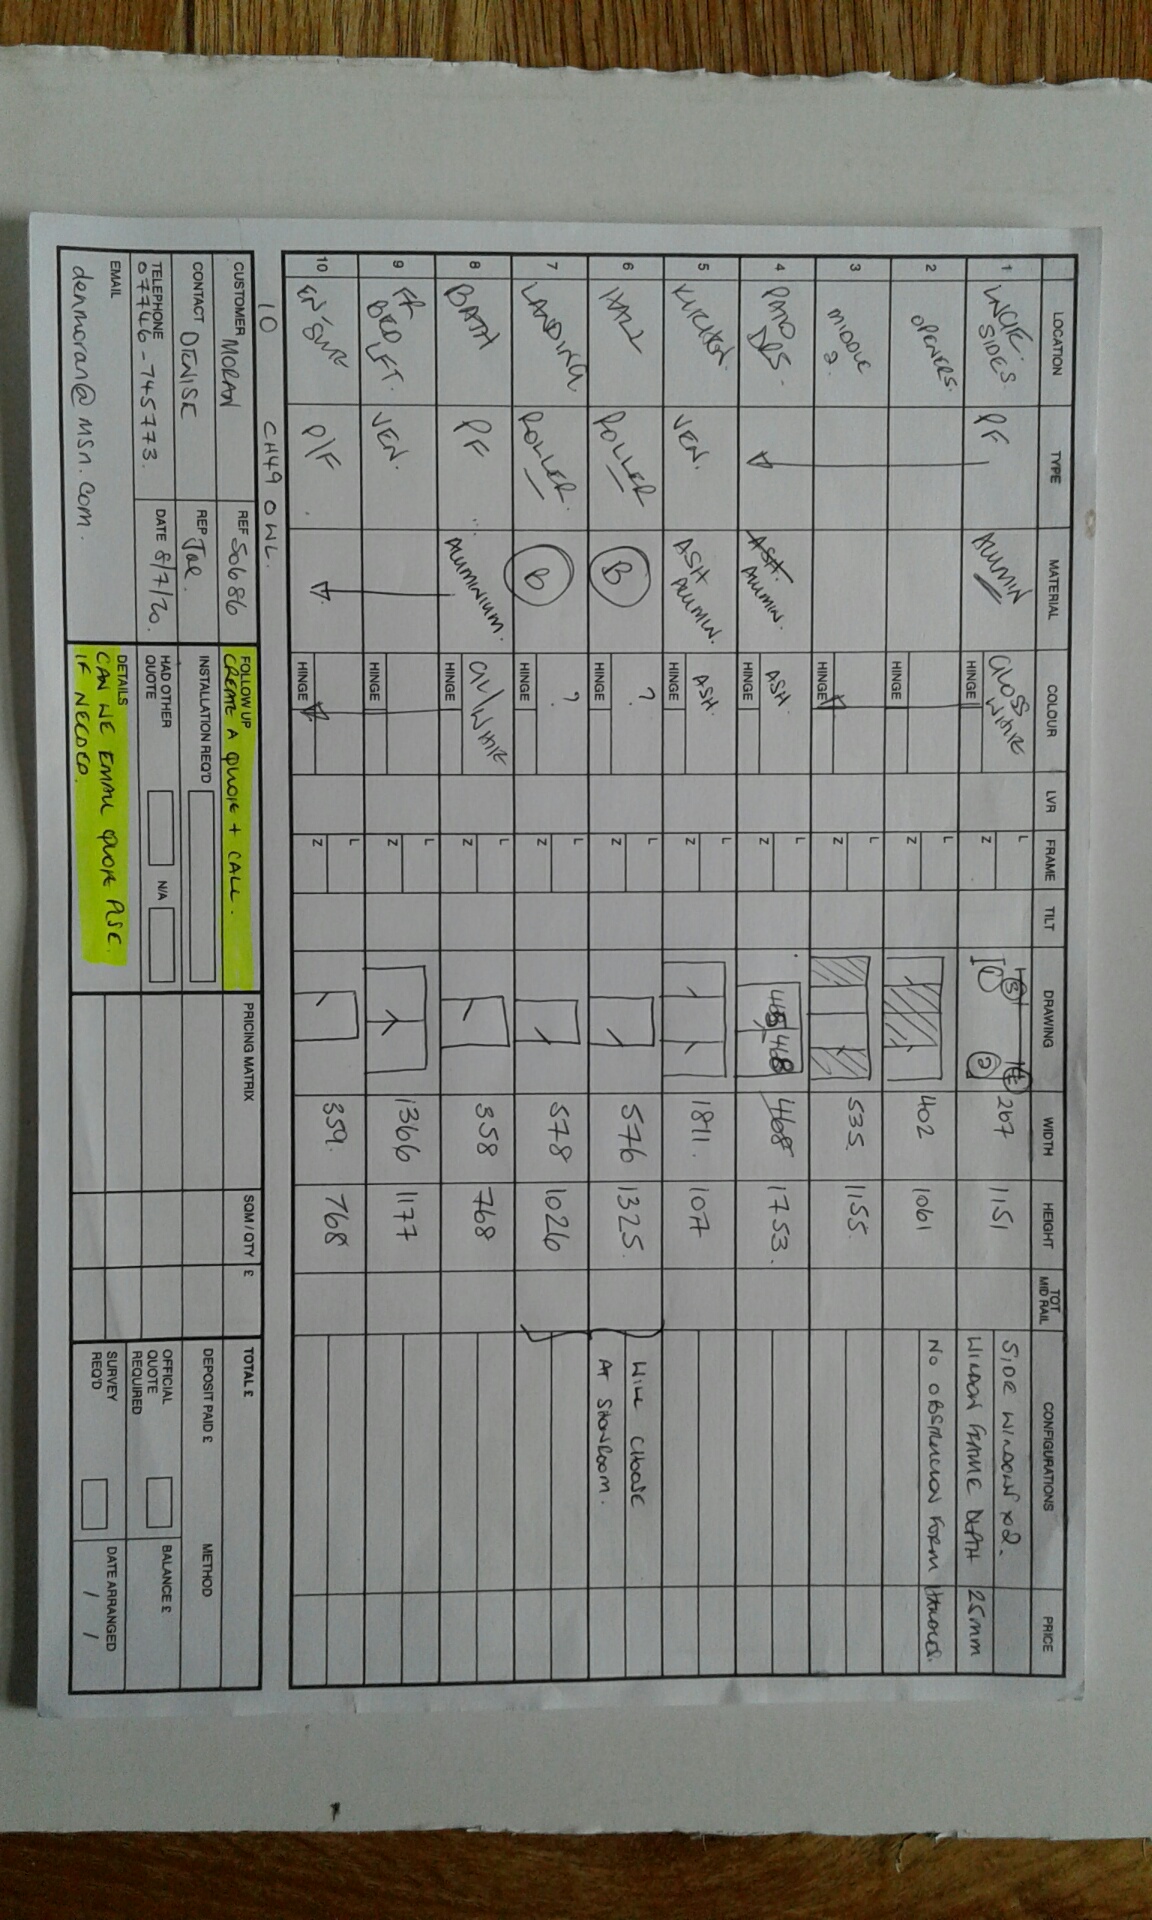 LOCATION TYPE MATERIAL COLOUR LVR FRAME TILT DRAWING WIDTH HEIGHT TOT MID RAIL CONFIGURATIONS PRICE
1 SIDES. PF ALUMIN GLOSS WHITE HINGE L Z 267 1151 SIDE WINDOWS x2.
WINDOW FRAME DEPTH 25mm
2 OPENERS. HINGE L Z 402 1061 NO OBSTRUCTION FORM HANDLE.
3 MIDDLE 2. HINGE L Z 535. 1155.
4 PATIO DRS. ASH. ALUMIN. ASH. HINGE L Z 468 468 468 1753.
5 KITCHEN. VEN. ASH ALUMIN. ASH. HINGE L Z 1811. 107
6 HALL ROLLER B ? HINGE L Z 576 1325. WILL CHOOSE
AT SHOWROOM.
7 LANDING. ROLLER. B ? HINGE L Z 578 1026
8 BATH PF ALUMINIUM. GL/WHITE HINGE L Z 358 768
9 FR BED LFT. VEN. HINGE L Z 1366 1177
10 EN'SUITE P/F HINGE L Z 359. 768
10 CH49 OWL.
CUSTOMER MORAN REF 50686
CONTACT DENISE REP JOE.
TELEPHONE 07746-745773. DATE 8/7/20.
EMAIL denmoran@msn.com.
FOLLOW UP
CREATE A QUOTE + CALL.
INSTALLATION REQ'D
HAD OTHER QUOTE N/A
DETAILS
CAN WE EMAIL QUOTE PLSE.
IF NEEDED.
PRICING MATRIX SQM / QTY £
TOTAL £
DEPOSIT PAID £ METHOD
OFFICIAL QUOTE REQUIRED BALANCE £
SURVEY REQ'D DATE ARRANGED / /